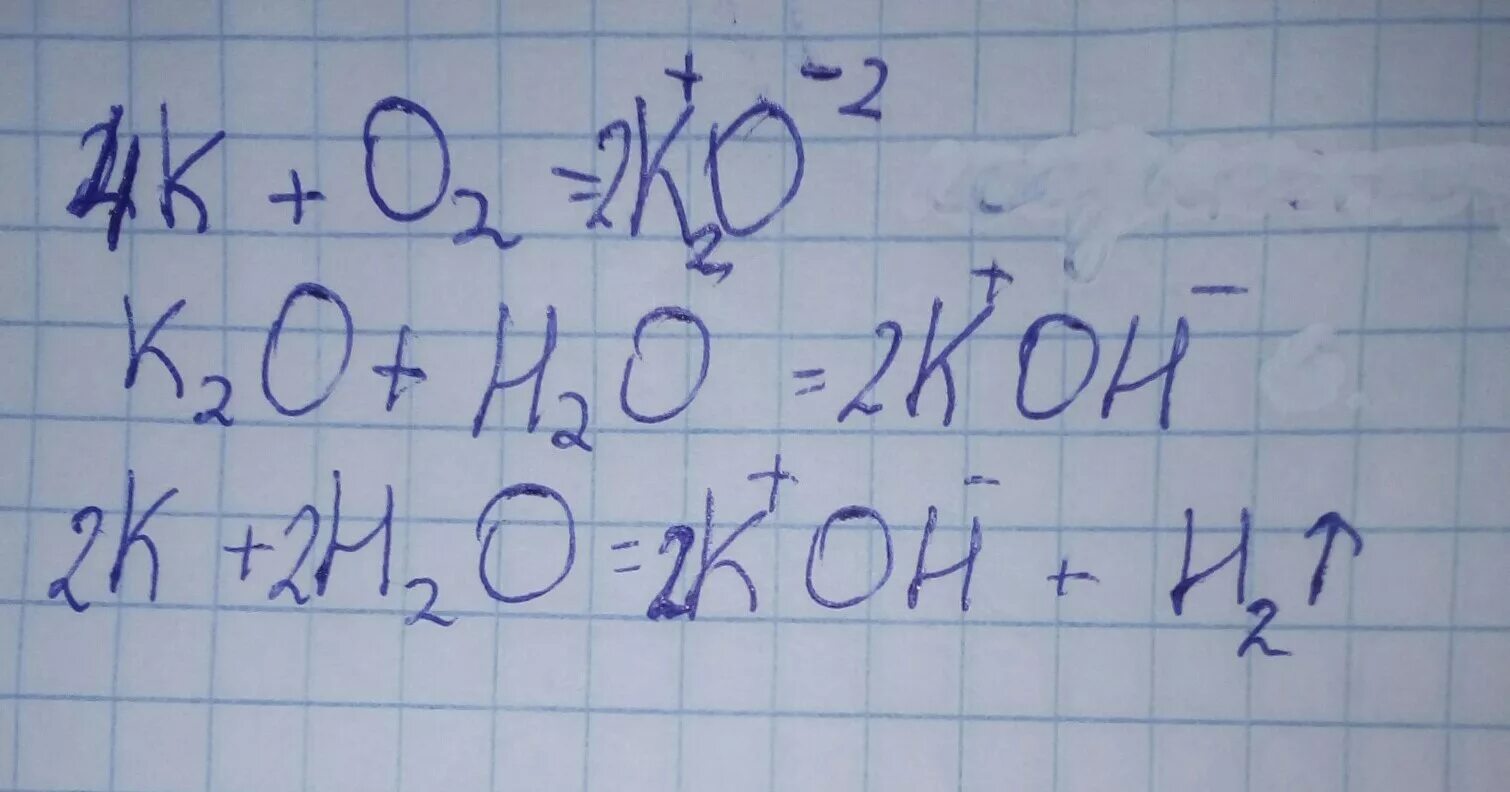 4K + O₂ = 2K₂⁺O⁻²
K₂O + H₂O = 2K⁺OH⁻
2K + 2H₂O = 2K⁺OH⁻ + H₂↑